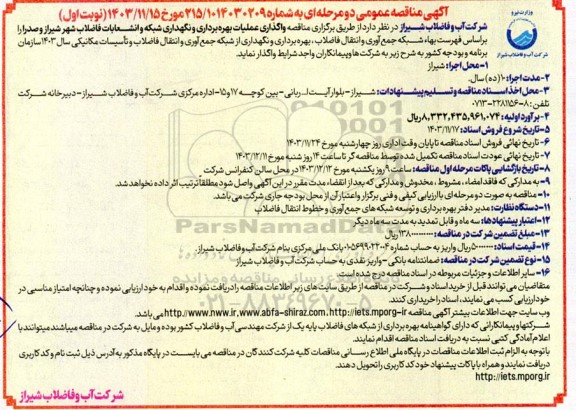 آگهی مناقصه عمومی دو مرحله‌ای به شماره ۲۱۵/۱۰۱۴۰۳۰۲۰۹ مورخ ۱۴۰۳/۱۱/۱۵ (نوبت اول)
وزارت نیرو
شرکت آب و فاضلاب شیراز
شرکت آب و فاضلاب شیراز در نظر دارد از طریق برگزاری مناقصه واگذاری عملیات بهره برداری و نگهداری شبکه و انشعابات فاضلاب شهر شیراز و صدرا را
براساس فهرست بهاء شبکه جمع آوری و انتقال فاضلاب، بهره برداری و نگهداری از شبکه جمع آوری و انتقال فاضلاب و تأسیسات مکانیکی سال ۱۴۰۳ سازمان
برنامه و بودجه کشور به شرح زیر به شرکت‌ها و پیمانکاران واجد شرایط واگذار نماید.
۱- محل اجرا: شیراز
۲- مدت اجرا: ۱۰ (ده) سال.
۳- محل اخذ اسناد مناقصه و تسلیم پیشنهادات: شیراز - بلوار آیت ا... ربانی - بین کوچه ۱۷ و ۱۵ - اداره مرکزی شرکت آب و فاضلاب شیراز - دبیرخانه شرکت
تلفن: ۸-۲۲۸۱۱۵۶-۰۷۱۳
۴- برآورد اولیه: ۸,۳۳۲,۴۳۵,۹۶۱,۰۷۴ ریال
۵- تاریخ شروع فروش اسناد: ۱۴۰۳/۱۱/۱۷
۶- تاریخ نهائی فروش اسناد مناقصه تا پایان وقت اداری روز چهارشنبه مورخ ۱۴۰۳/۱۱/۲۴
۷- تاریخ نهائی عودت اسناد مناقصه تکمیل شده توسط مناقصه گر تا ساعت ۱۴ روز شنبه مورخ ۱۴۰۳/۱۲/۱۱
۸- تاریخ بازگشایی پاکات مرحله اول مناقصه: ساعت ۹ روز یکشنبه مورخ ۱۴۰۳/۱۲/۱۲ در محل سالن کنفرانس شرکت
۹- به مدارکی که فاقد امضاء، مشروط، مخدوش و مدارکی که بعد از انقضاء مدت مقرر در این آگهی واصل شود مطلقاً ترتیب اثر داده نخواهد شد.
۱۰- مناقصه به صورت دو مرحله ای با ارزیابی کیفی و فنی برگزار و اعتبار آن از محل بودجه جاری شرکت می باشد.
۱۱- دستگاه نظارت: مدیر دفتر بهره برداری و توسعه شبکه های جمع آوری و خطوط انتقال فاضلاب
۱۲- اعتبار پیشنهادها: سه ماه و قابل تمدید به مدت سه ماه دیگر
۱۳- مبلغ تضمین شرکت در مناقصه:
۱۴- قیمت اسناد: ۵۰۰۰۰۰۰ ریال واریز به حساب شماره ۰۱۰۵۶۹۹۰۲۲۰۰۴ بانک ملی مرکزی بنام شرکت آب و فاضلاب شیراز.
۱۵- نوع تضمین شرکت در مناقصه: ضمانتنامه بانکی - واریز نقدی به حساب شرکت آب و فاضلاب شیراز
۱۶- سایر اطلاعات و جزئیات مربوطه در اسناد مناقصه درج شده است.
متقاضیان می توانند قبل از خرید اسناد و شرکت در مناقصه از طریق سایت های زیر اطلاعات مناقصه را دریافت نموده و اقدام به خود ارزیابی نموده و چنانچه امتیاز مناسبی در
خود ارزیابی کسب می نمایند، اسناد را خریداری کنند.
وب سایت جهت اطلاعات بیشتر آگهی مناقصه http://iets.mporg-ir و www.abfa-shiraz.com و http://www.nww.ir می باشد.
شرکتها و پیمانکارانی که دارای گواهینامه بهره برداری از شبکه های فاضلاب پایه یک از شرکت مهندسی آب و فاضلاب کشور بوده و مایل به شرکت در مناقصه میباشند میتوانند با
اعلام آمادگی کتبی نسبت به دریافت اسناد مناقصه اقدام نمایند.
با توجه به الزام ثبت اطلاعات مناقصات در پایگاه ملی اطلاع رسانی مناقصات کلیه شرکت کنندگان در مناقصه می بایست در پایگاه مذکور به آدرس ذیل ثبت نام و کد کاربری
دریافت نمایند و همراه با پاکات پیشنهاد خود کد کاربری را تحویل دهند.
http://iets.mporg.ir
شرکت آب و فاضلاب شیراز
ParsNamadData
۰۲۱-۸۸۳۴۹۶۷۰-۵